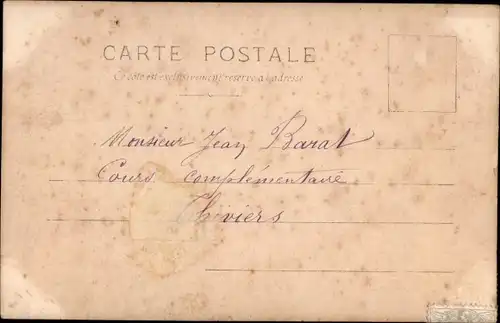 CARTE POSTALE
Ce côté est exclusivement réservé à l'adresse
Monsieur Jean Barat
Cours complémentaire
Thiviers